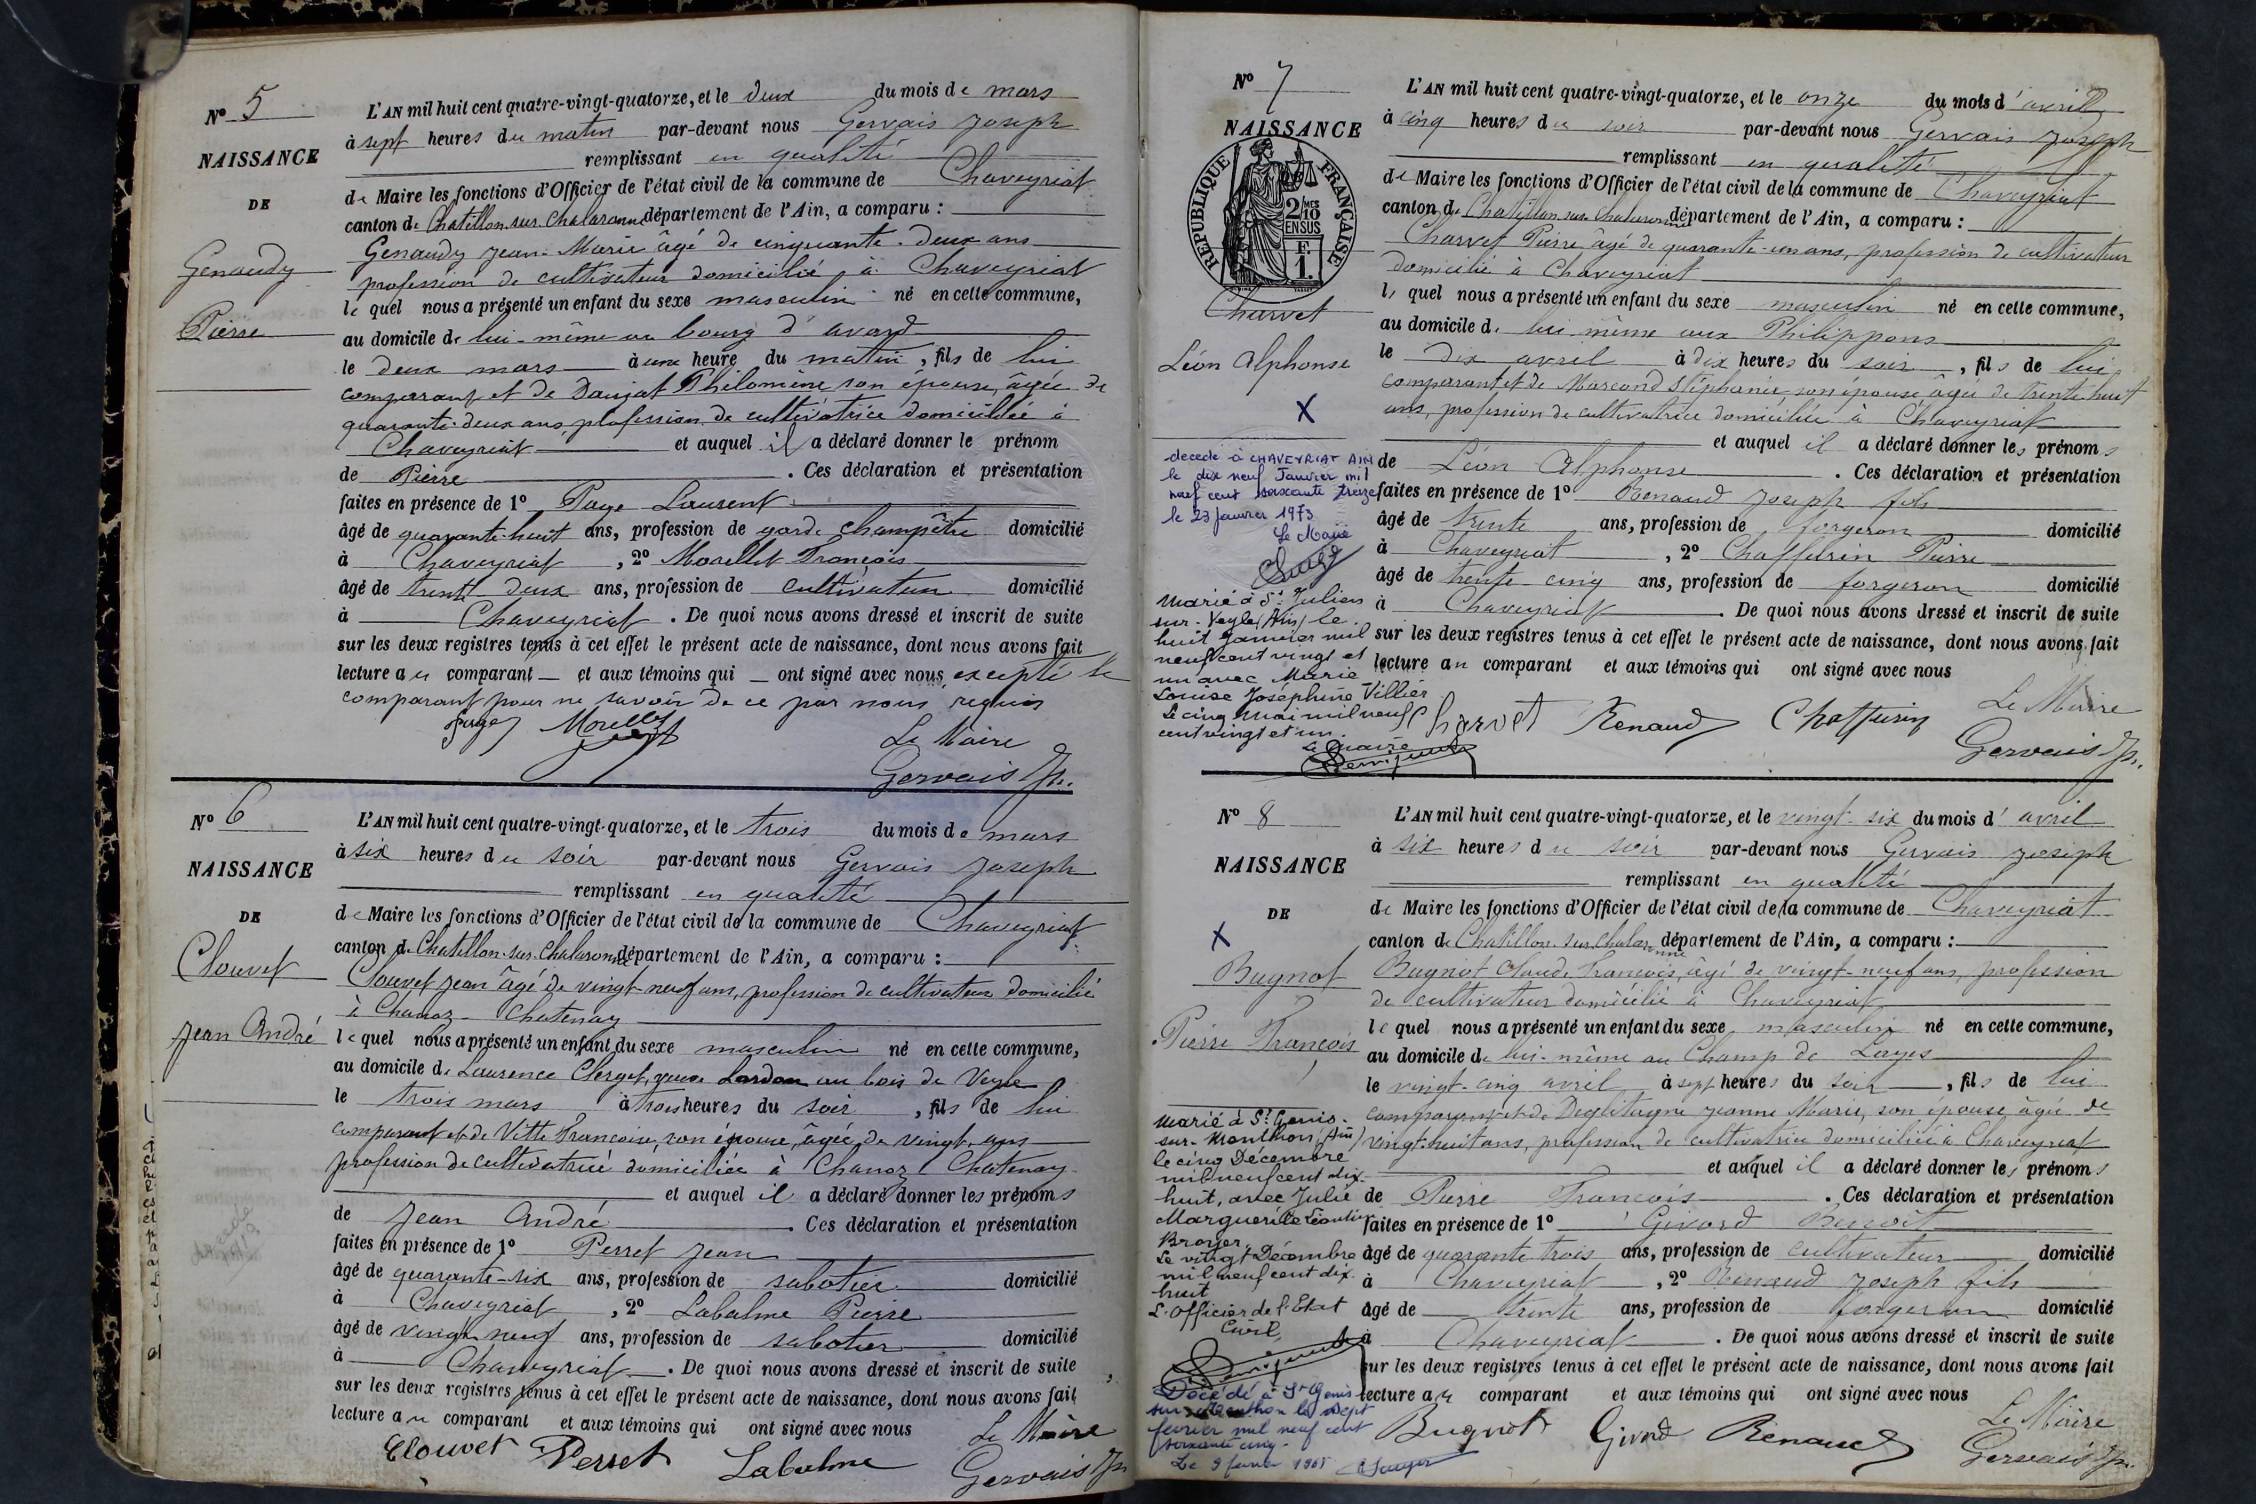 N° 5
NAISSANCE
DE
Genaudy
Pierre
L'AN mil huit cent quatre-vingt-quatorze, et le deux du mois de mars
à sept heures du matin par-devant nous Gervais Joseph
remplissant en qualité
de Maire les fonctions d'Officier de l'état civil de la commune de Chaveyriat
canton de Chatillon-sur-Chalaronne département de l'Ain, a comparu :
Genaudy Jean-Marie âgé de cinquante-deux ans
profession de cultivateur domicilié à Chaveyriat
lequel nous a présenté un enfant du sexe masculin né en cette commune,
au domicile de lui-même au bourg d'avard
le deux mars à une heure du matin, fils de lui
comparant et de Danjat Philomène son épouse, âgée de
quarante-deux ans profession de cultivatrice domiciliée à
Chaveyriat et auquel il a déclaré donner le prénom
de Pierre. Ces déclaration et présentation
faites en présence de 1° Page Laurent
âgé de quarante-huit ans, profession de garde champêtre domicilié
à Chaveyriat, 2° Morellet François
âgé de trente-deux ans, profession de cultivateur domicilié
à Chaveyriat. De quoi nous avons dressé et inscrit de suite
sur les deux registres tenus à cet effet le présent acte de naissance, dont nous avons fait
lecture au comparant et aux témoins qui ont signé avec nous, excepté le
comparant pour ne savoir de ce par nous requis
Page Morellet
Le Maire
Gervais Jh.
N° 6
NAISSANCE
DE
Clouvet
Jean André
L'AN mil huit cent quatre-vingt-quatorze, et le trois du mois de mars
à six heures du soir par-devant nous Gervais Joseph
remplissant en qualité
de Maire les fonctions d'Officier de l'état civil de la commune de Chaveyriat
canton de Chatillon-sur-Chalaronne département de l'Ain, a comparu :
Clouvet Jean âgé de vingt-neuf ans, profession de cultivateur domicilié
à Chanoz-Chatenay
lequel nous a présenté un enfant du sexe masculin né en cette commune,
au domicile de Laurence Clerget, veuve Lardon au bois de Veyle
le trois mars à trois heures du soir, fils de lui
comparant et de Vitte Françoise, son épouse, âgée de vingt ans
profession de cultivatrice domiciliée à Chanoz Chatenay
et auquel il a déclaré donner les prénoms
de Jean André. Ces déclaration et présentation
faites en présence de 1° Perret Jean
âgé de quarante-six ans, profession de sabotier domicilié
à Chaveyriat, 2° Labalme Pierre
âgé de vingt-neuf ans, profession de sabotier domicilié
à Chaveyriat. De quoi nous avons dressé et inscrit de suite
sur les deux registres tenus à cet effet le présent acte de naissance, dont nous avons fait
lecture au comparant et aux témoins qui ont signé avec nous
Le Maire
Clouvet Perret Labalme Gervais Jh
N° 7
NAISSANCE
RÉPUBLIQUE FRANÇAISE
2/10 MES
EN SUS
F.
1.
Charvet
Léon Alphonse
X
décédé à CHAVEYRIAT AIN
le dix neuf Janvier mil
neuf cent soixante treize
le 23 Janvier 1973
Le Maire
Marié à St Julien
sur-Veyle (Ain) le
huit Janvier mil
neuf cent vingt et
un avec Marie
Louise Joséphine Villier
Le cinq Mai mil neuf
cent vingt et un.
Le Maire
L'AN mil huit cent quatre-vingt-quatorze, et le onze du mois d'avril
à cinq heures du soir par-devant nous Gervais Joseph
remplissant en qualité
de Maire les fonctions d'Officier de l'état civil de la commune de Chaveyriat
canton de Chatillon-sur-Chalaronne département de l'Ain, a comparu :
Charvet Pierre âgé de quarante-un ans, profession de cultivateur
domicilié à Chaveyriat
lequel nous a présenté un enfant du sexe masculin né en cette commune,
au domicile de lui même aux Philippons
le dix avril à dix heures du soir, fils de lui
comparant et de Marcand Stéphanie, son épouse âgée de trente-huit
ans, profession de cultivatrice domiciliée à Chaveyriat
et auquel il a déclaré donner les prénoms
de Léon Alphonse. Ces déclaration et présentation
faites en présence de 1° Renaud Joseph fils
âgé de trente ans, profession de forgeron domicilié
à Chaveyriat, 2° Chaffurin Pierre
âgé de trente-cinq ans, profession de forgeron domicilié
à Chaveyriat. De quoi nous avons dressé et inscrit de suite
sur les deux registres tenus à cet effet le présent acte de naissance, dont nous avons fait
lecture au comparant et aux témoins qui ont signé avec nous
Charvet Renaud Chaffurin Le Maire
Gervais Jh.
N° 8
NAISSANCE
DE
X
Bugnot
Pierre François
Marié à St Genis-
sur-Menthon (Ain)
le cinq Décembre
mil neuf cent dix-
huit, avec Julie
Marguerite Léontine
Broyer.
Le vingt Décembre
mil neuf cent dix-
huit
L'Officier de l'Etat
Civil,
Décédé à St Genis
sur Menthon le sept
février mil neuf cent
soixante cinq.
Le 9 février 1965
L'AN mil huit cent quatre-vingt-quatorze, et le vingt-six du mois d'avril
à six heures du soir par-devant nous Gervais Joseph
remplissant en qualité
de Maire les fonctions d'Officier de l'état civil de la commune de Chaveyriat
canton de Chatillon-sur-Chalaronne département de l'Ain, a comparu :
Bugnot Claude François, âgé de vingt-neuf ans, profession
de cultivateur domicilié à Chaveyriat
lequel nous a présenté un enfant du sexe masculin né en cette commune,
au domicile de lui-même au Champ de Layes
le vingt-cinq avril à sept heures du soir, fils de lui
comparant et de Deglitagne Jeanne Marie, son épouse âgée de
vingt-huit ans, profession de cultivatrice domiciliée à Chaveyriat
et auquel il a déclaré donner les prénoms
de Pierre François. Ces déclaration et présentation
faites en présence de 1° Givord Benoît
âgé de quarante trois ans, profession de cultivateur domicilié
à Chaveyriat, 2° Renaud Joseph fils
âgé de trente ans, profession de forgeron domicilié
à Chaveyriat. De quoi nous avons dressé et inscrit de suite
sur les deux registres tenus à cet effet le présent acte de naissance, dont nous avons fait
lecture au comparant et aux témoins qui ont signé avec nous
Le Maire
Bugnot Givord Renaud Gervais Jh.